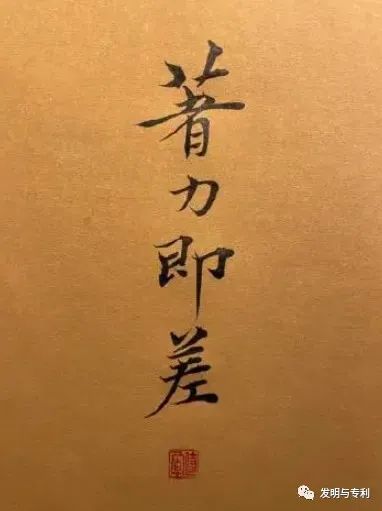 著力即差
发明与专利